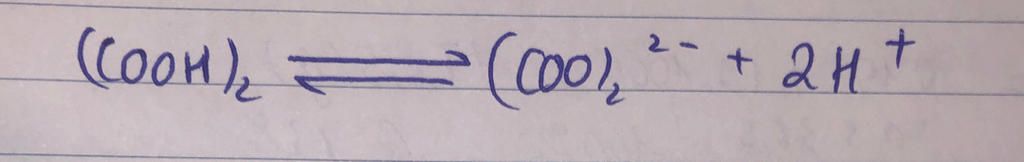 (COOH)₂ ⇌ (COO)₂²⁻ + 2H⁺